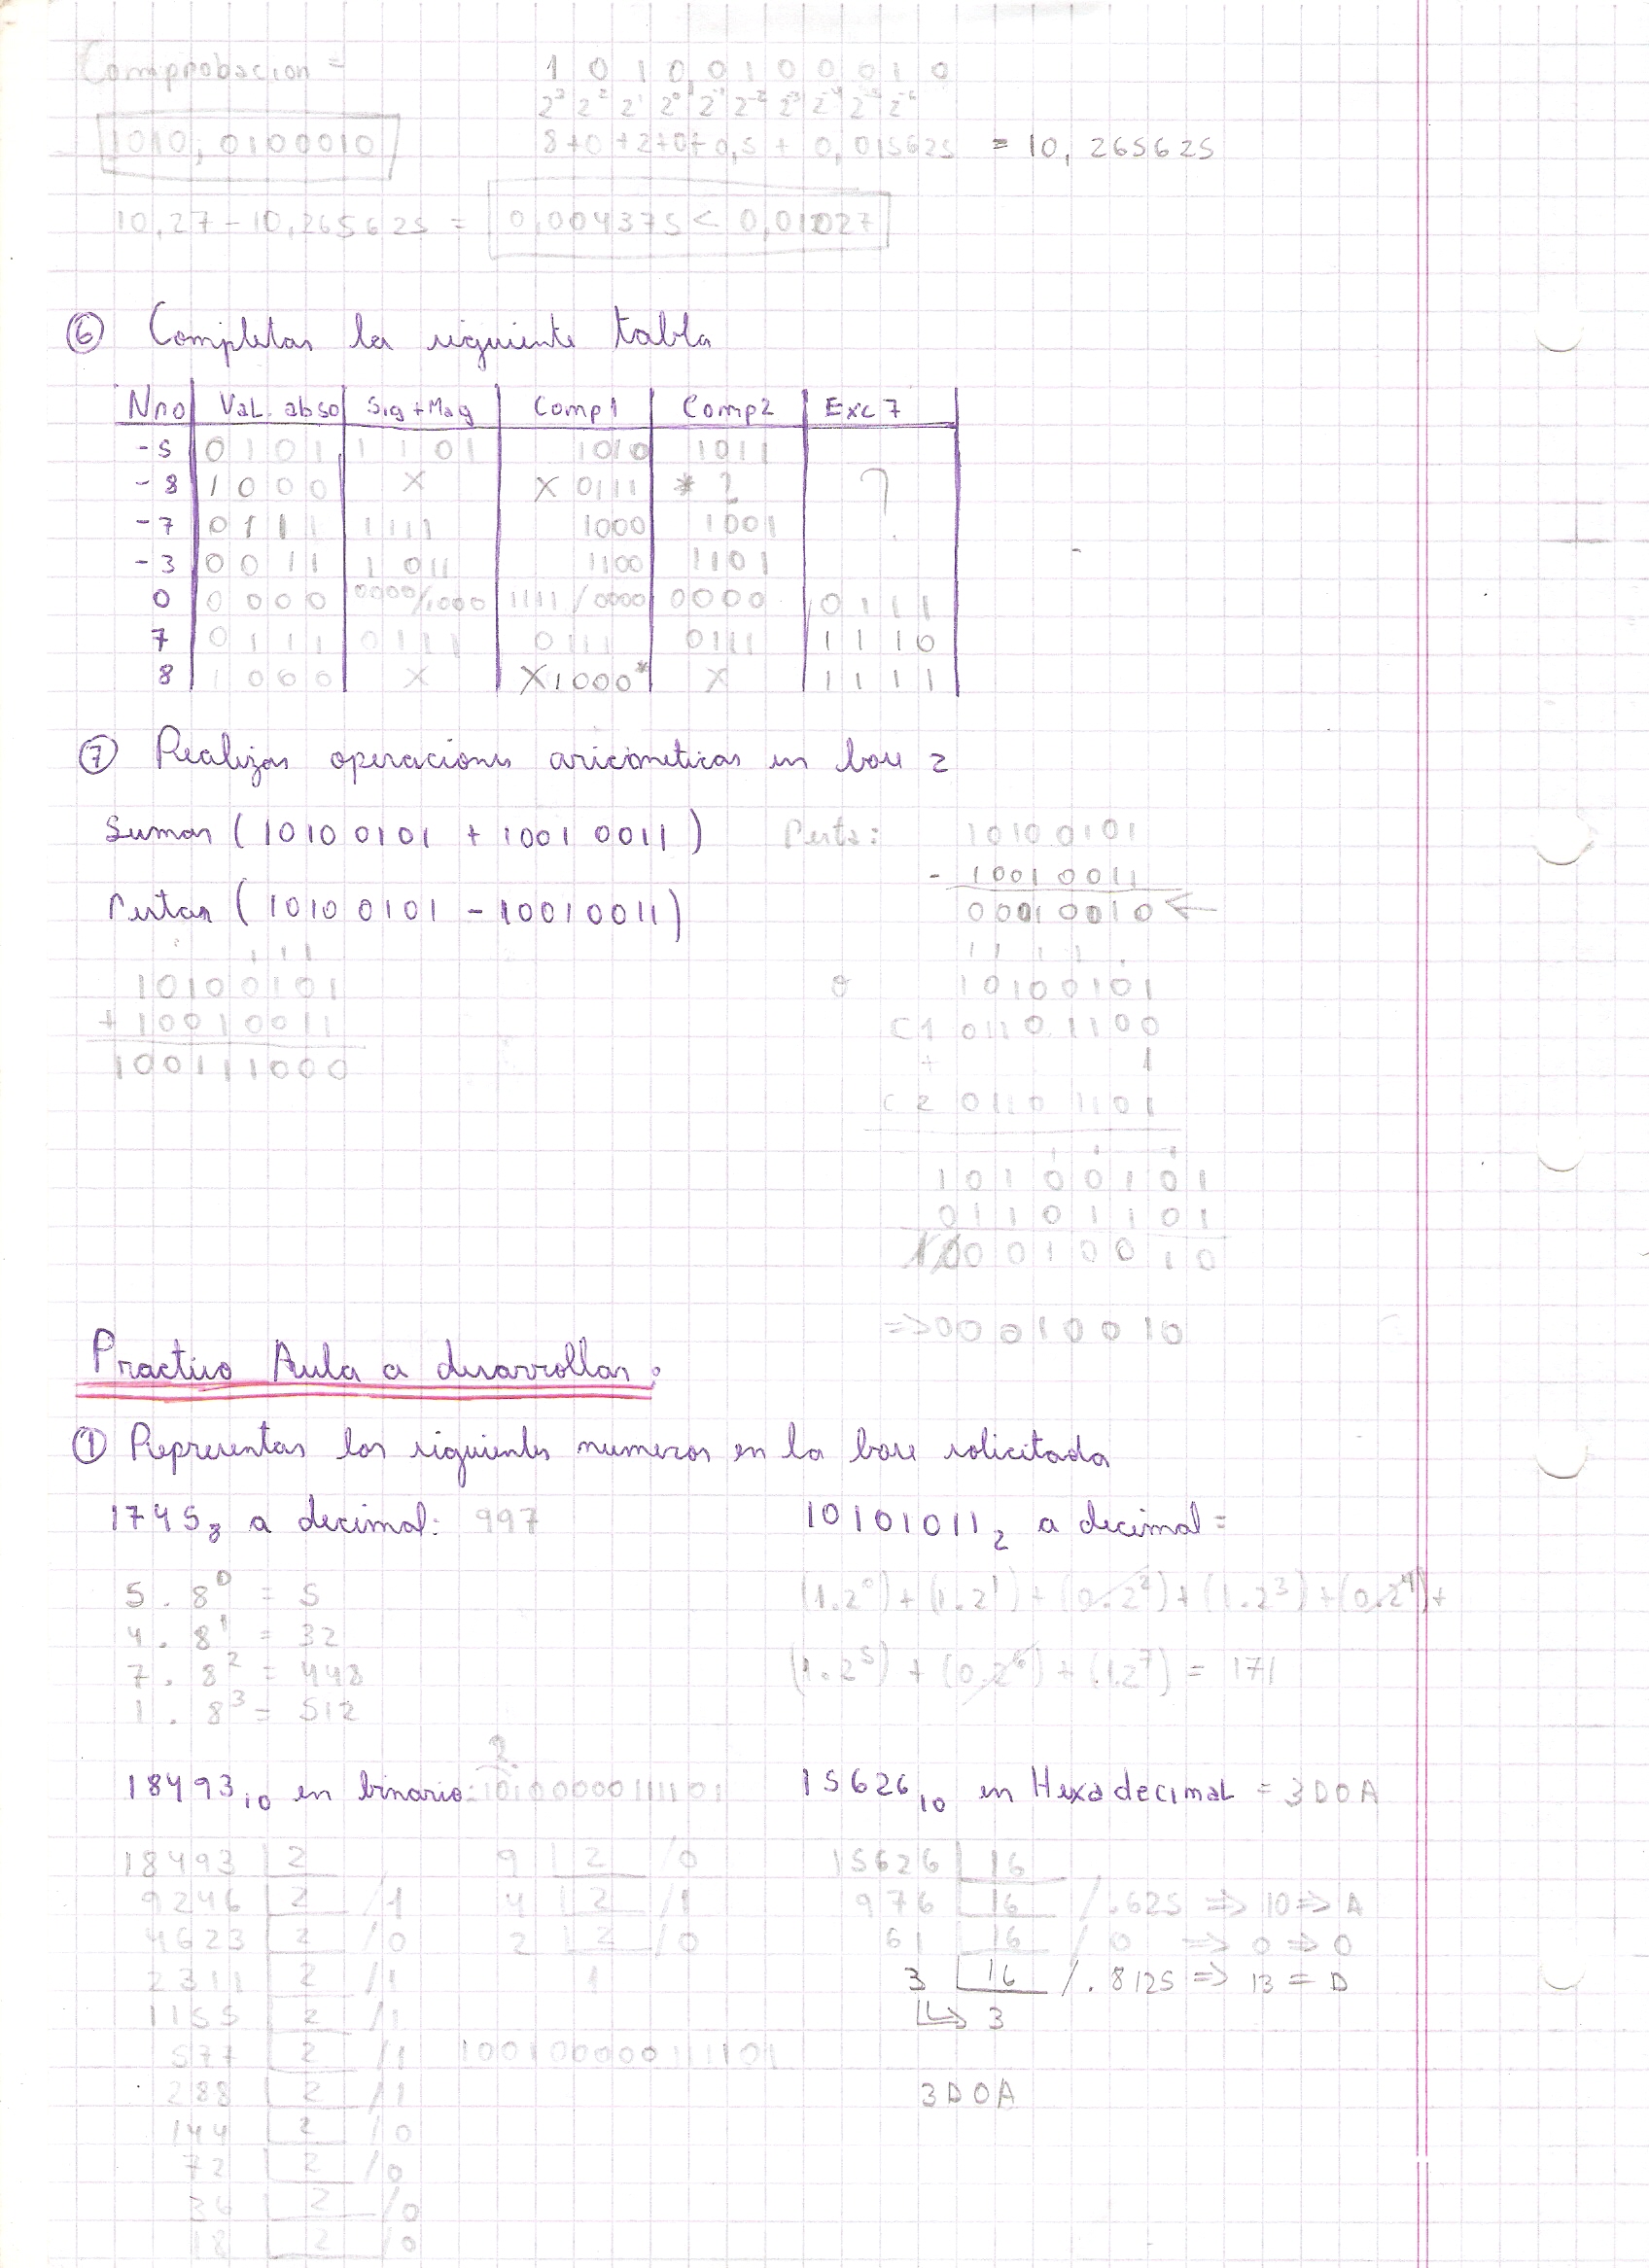 Comprobacion =
1 0 1 0, 0 1 0 0 0 1 0
2³ 2² 2¹ 2⁰ 2⁻¹ 2⁻² 2⁻³ 2⁻⁴ 2⁻⁵ 2⁻⁶
1010, 0100010
8+0+2+0+0,5+0,015625 = 10, 265625
10,27 - 10,265625 = 0,004375 < 0,01027
⑥ Completar la siguiente tabla
Nro | Val. abso | Sig + Mag | Comp1 | Comp2 | Exc 7
-5 | 0101 | 1101 | 1010 | 1011 |
-8 | 1000 | X | X 0111 | * ? | ?
-7 | 0111 | 1111 | 1000 | 1001 |
-3 | 0011 | 1011 | 1100 | 1101 |
0 | 0000 | 0000/1000 | 1111/0000 | 0000 | 0111
7 | 0111 | 0111 | 0111 | 0111 | 1110
8 | 1000 | X | X1000* | X | 1111
⑦ Realizar operaciones aricmeticas en base 2
Sumar (10100101 + 10010011)
Restar (10100101 - 10010011)
111
10100101
+ 10010011
100111000
Resta: 10100101
- 10010011
00010010 ←
o 10100101
C1 01101100
+ 1
C2 01101101
10100101
01101101
=> 00010010
Practico Aula a desarrollar:
① Representar los siguientes numeros en la base solicitada
1745₈ a decimal: 997
5 . 8⁰ = 5
4 . 8¹ = 32
7 . 8² = 448
1 . 8³ = 512
10101011₂ a decimal =
(1.2⁰) + (1.2¹) + (0.2²) + (1.2³) + (0.2⁴) +
(1.2⁵) + (0.2⁶) + (1.2⁷) = 171
?
18493₁₀ en binario: 10100000111101
18493 | 2
9246 | 2 /1
4623 | 2 /0
2311 | 2 /1
1155 | 2 /1
577 | 2 /1
288 | 2 /1
144 | 2 /0
72 | 2 /0
36 | 2 /0
18 | 2 /0
9 | 2 /0
4 | 2 /1
2 | 2 /0
1
100100000111101
15626₁₀ en Hexadecimal = 3D0A
15626 | 16
976 | 16 /.625 => 10 => A
61 | 16 / 0 => 0 => 0
3 | 16 /.8125 => 13 = D
↳ 3
3D0A